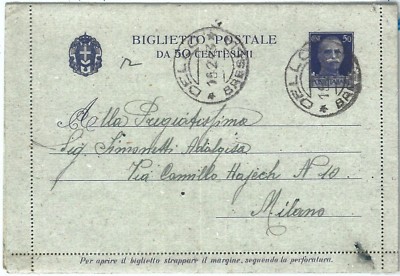 BIGLIETTO POSTALE
DA 50 CENTESIMI
50
DELLO
BRESCIA
DELLO
Alla Pregiatissima
Sig. Simonetti Adaloisa
Via Camillo Hajech N 10
Milano
Per aprire il biglietto strappare il margine, seguendo la perforatura.